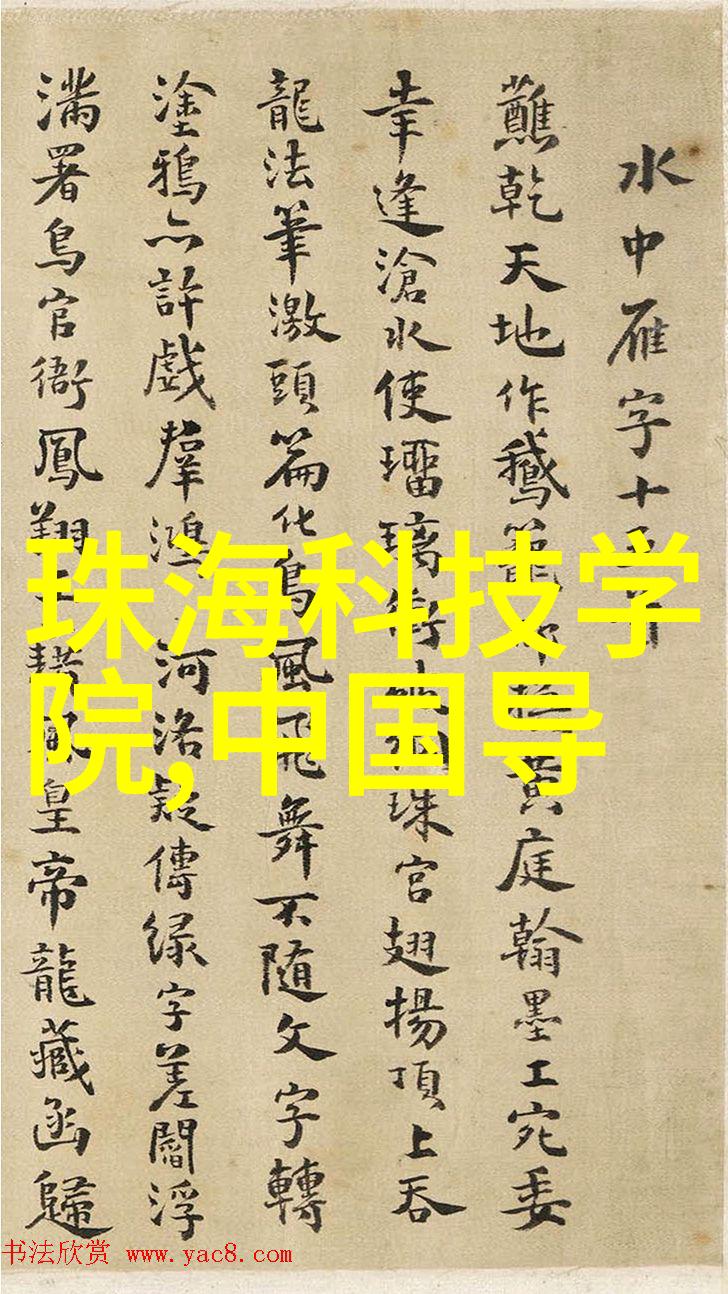 水中雁字十
蘸乾天地作鵝籠黄庭翰墨工宛委
幸逢滄水使瑠璃珠宮翅揚頂上吞
龍法筆激頭篇化鳥風飛舞不随文字轉
塗鴉亦許戲羣鴻河洛疑傳緑字差閻浮
滿署鳥官衙鳳翔皇帝龍藏函歸
珠海科技学
院,中国导
书法欣赏 www.yac8.com